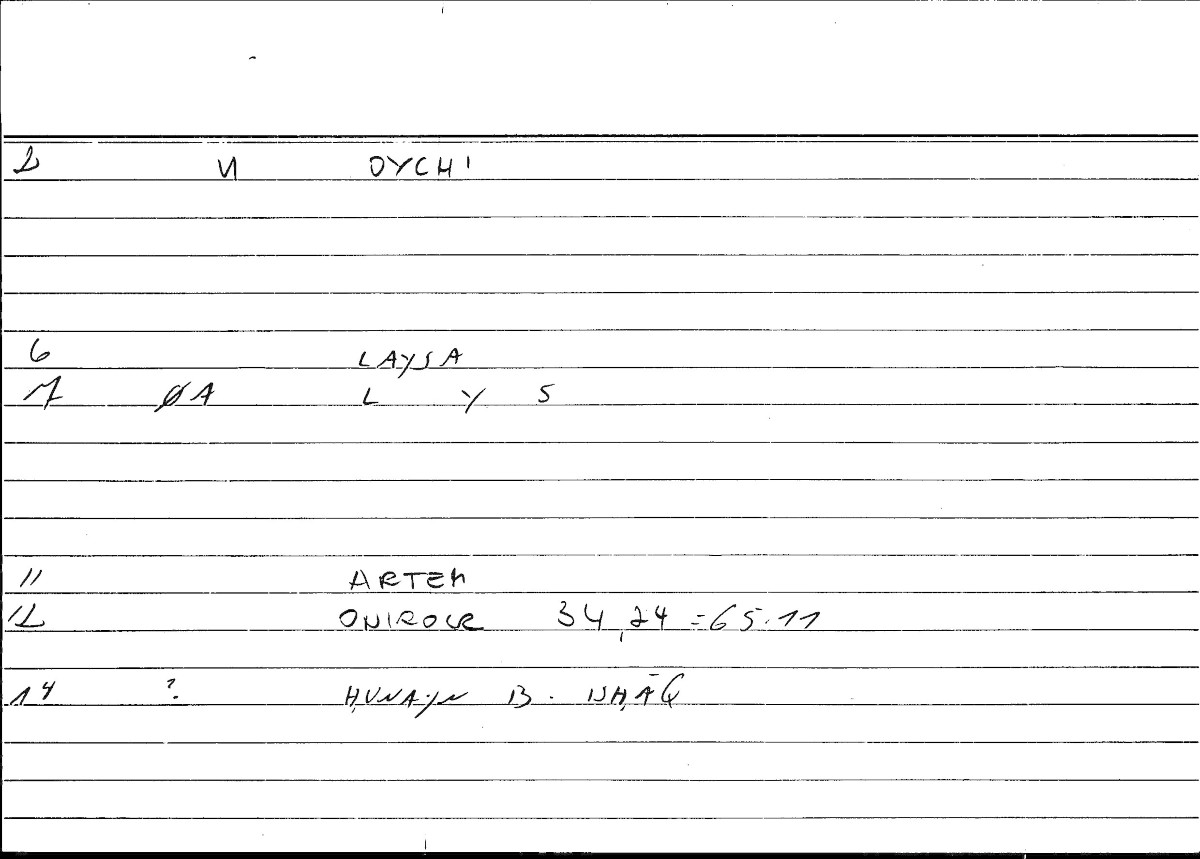 2 N OYCHI
6 LAYSA
7 ØA L Y S
11 ARTEM
12 ONIROCR 34,24 = 65.11
14 ? ḤUNAYN B. ISḤĀQ